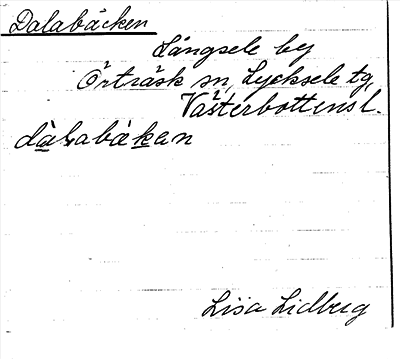 Dalabäcken
Långsele by
Örträsk sn, Lycksele tg,
Västerbottens l.
dàlabäkan
Lisa Lidberg